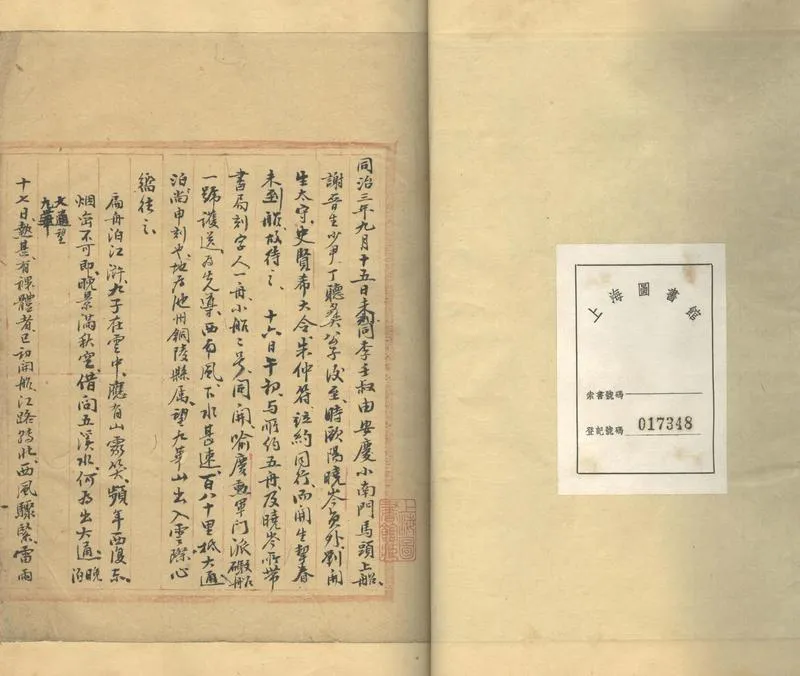 上海圖書館
索書號碼
登記號碼 017348
同治三年九月十五日未刻同李壬叔由安慶小南門馬頭上船
謝晉生少尹丁聽彝公子後至時歐陽曉岑員外劉開
生太守史賢希大令朱仲符竝約同行而開生挈眷
未到船故待之 十六日午初與所約五舟及曉岑所帶
書局刻字人一舟小船二隻同開喻慶勳軍門派礮船
一號護送為先導西南風下水甚速百八十里抵大通
泊尚申刻也地為池州銅陵縣屬望九華山出入雲際心
嚮往之
扁舟泊江滸九子在雲中應有山靈笑頻年西復東
烟峦不可即晚景滿秋空借問五溪水何為出大通 晚泊
大通望
九華
十七日熱甚有裸體者巳初開船江路轉北西風驟緊雷雨
上海圖
書館藏